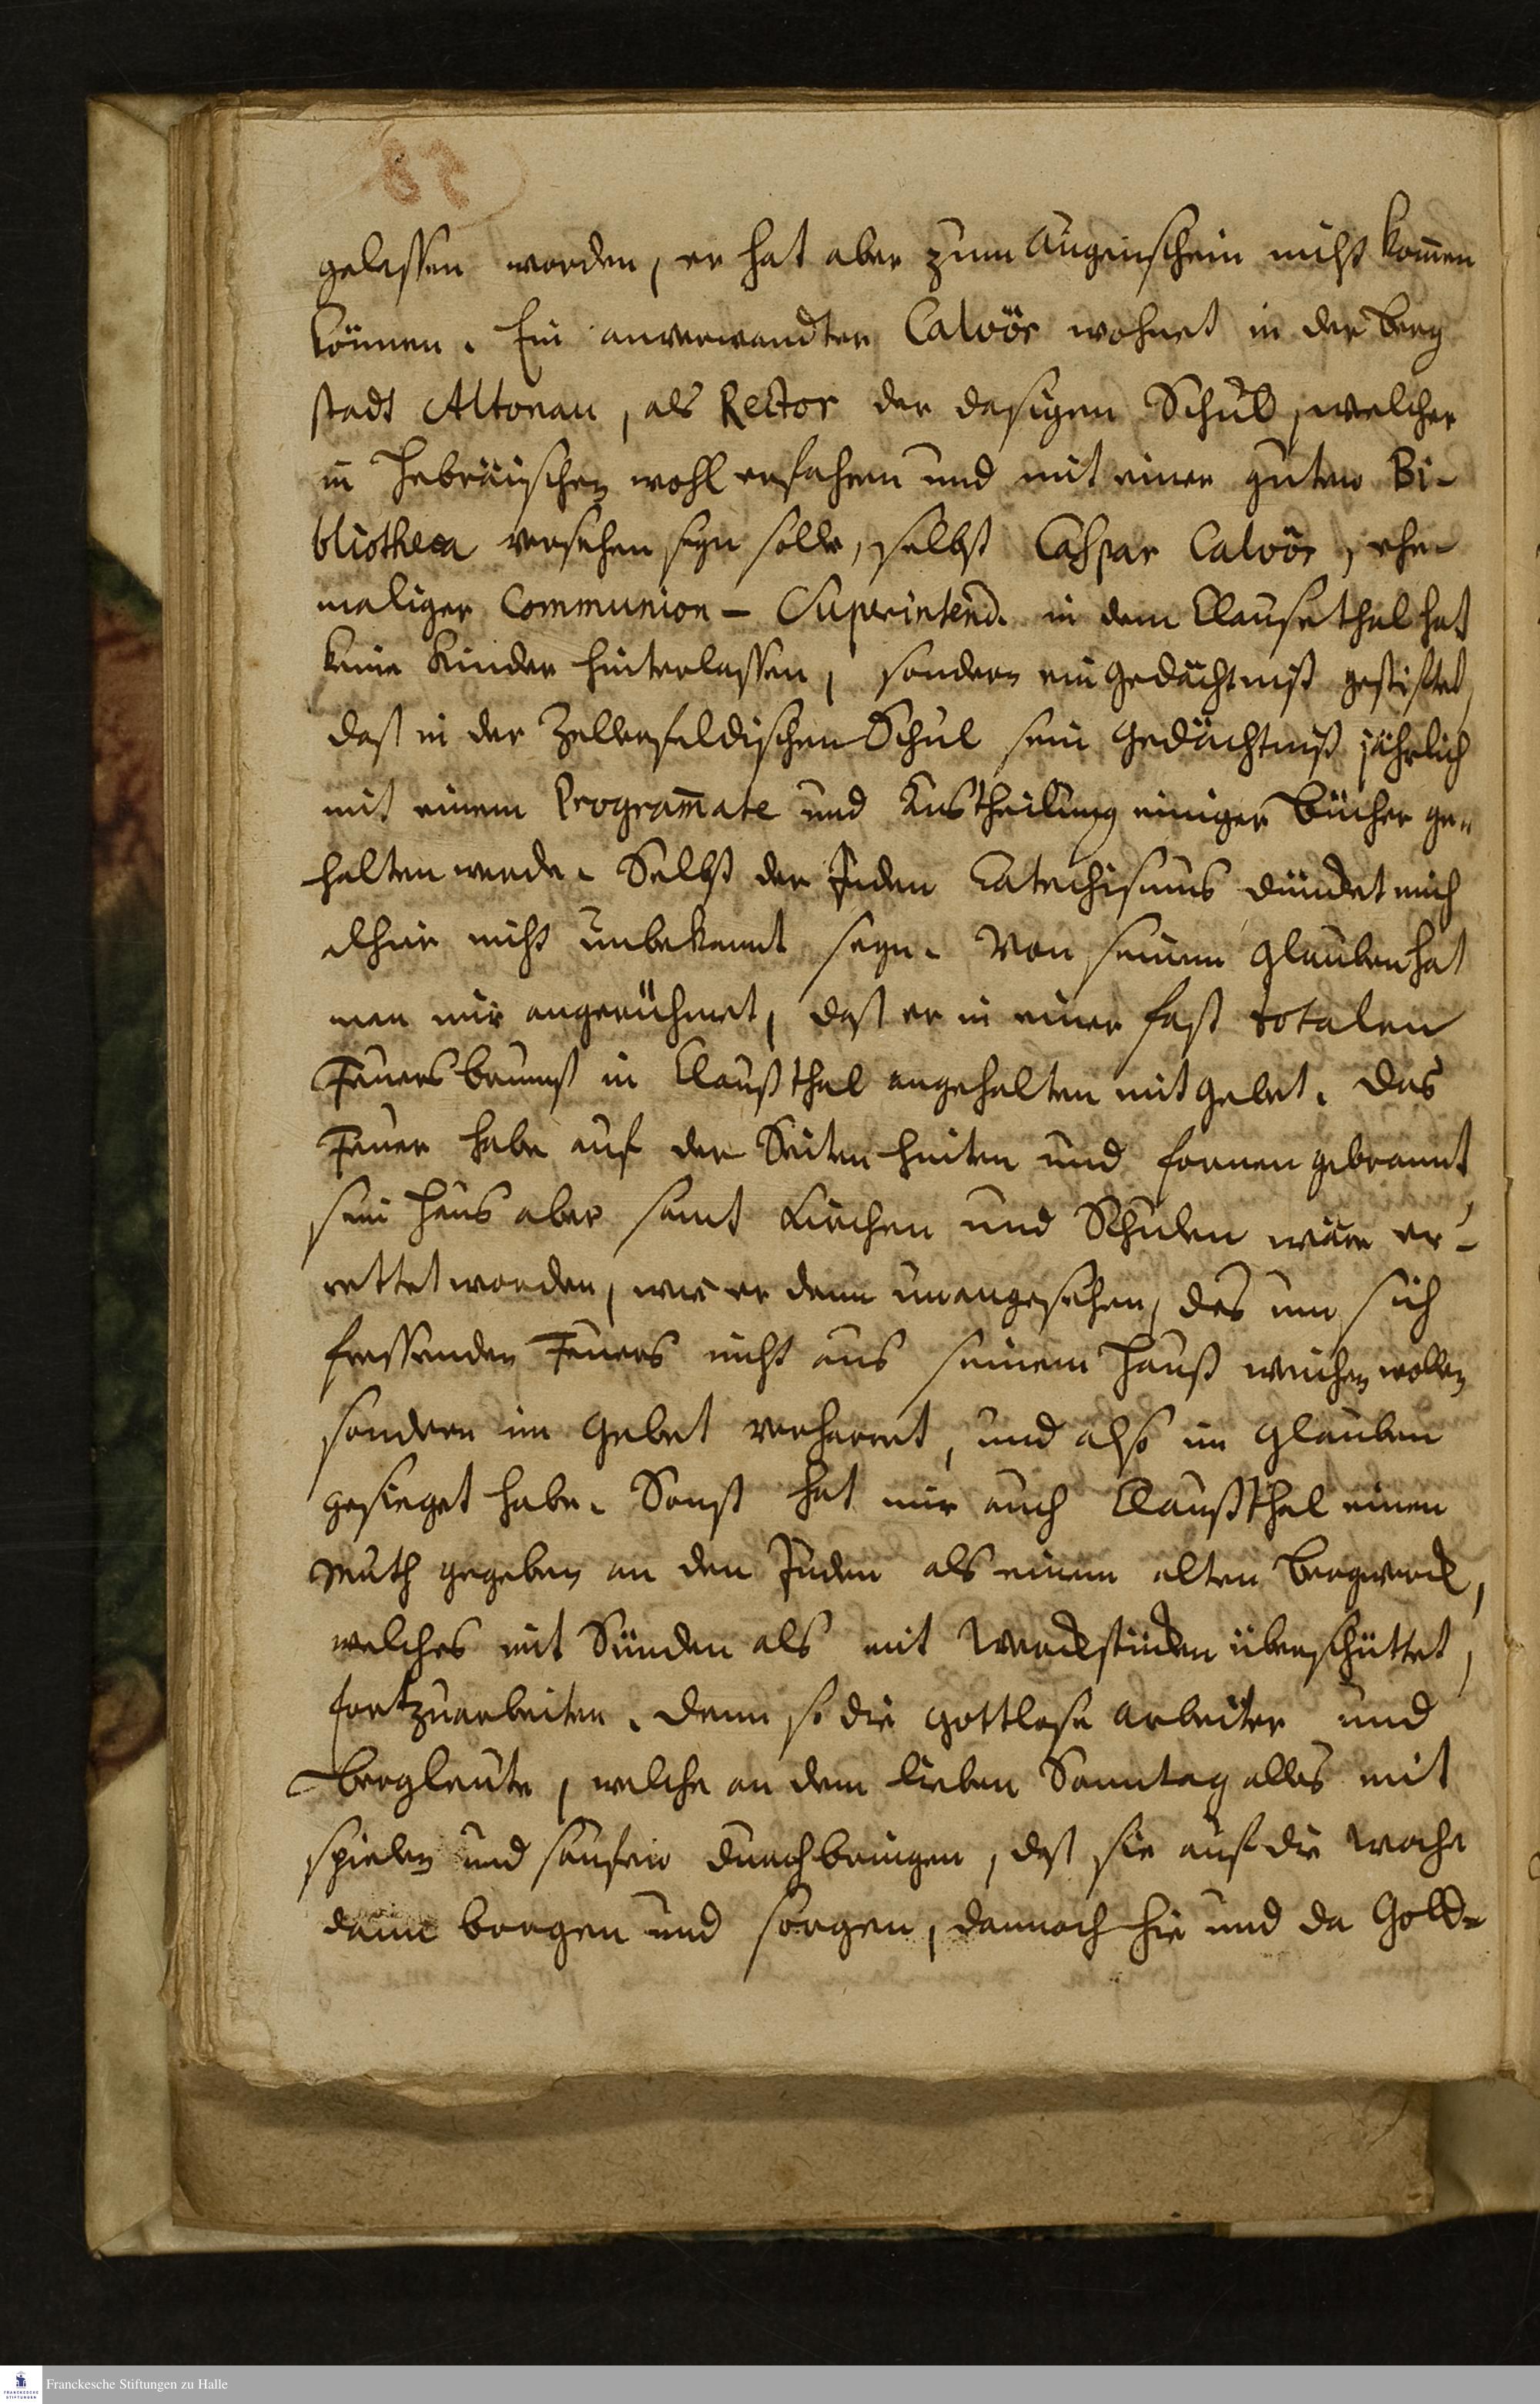 gelassen worden, er hat aber zum Augenschein nicht kom̄en
können. Ein anverwandter Calvör wohnet in der Berg
stadt Altonau, als Rector der dasigen Schul, welcher
in Hebräischen wohl erfahren und mit einer guten Bi-
bliotheca versehen seyn solle, selbst Caspar Calvör, ehe-
maliger Communion-Superintend. in dem Clausethal hat
keine Kinder hinterlassen, sondern ein Gedächtniß gestiftet,
daß in der Zellerfeldischen Schul sein Gedächtniß jährlich
mit einem Program̄ate und Austheilung einiger Bücher ge-
halten werde. Selbst der Juden Catechismus dündet mich
alhier nicht unbekannt seyn. Von seinem Glauben hat
man mir angerühmet, daß er in einer fast totalen
Feuersbrunst in Claußthal angehalten mit Gebet. Das
Feuer habe auf der Seiten hinten und fornen gebrannt
sein Haus aber samt Kirchen und Schulen wäre er-
rettet worden, wie er denn unangesehen, des um sich
fressenden Feuers nicht aus seinem Hauß weichen wollen
sondern im Gebet verharret, und also im Glauben
gesieget habe. Sonst hat mir auch Claußthal einen
Muth gegeben an den Juden als einem alten Bergwerck,
welches mit Sünden als mit Werckstücken überschüttet,
fortzuarbeiten. Denn so die gottlose Arbeiter und
Bergleute, welche an dem lieben Sonntag alles mit
spielen und saufen durchbringen, daß sie auf die Woche
dann borgen und sorgen, dennoch hie und da Gold-
Franckesche Stiftungen zu Halle